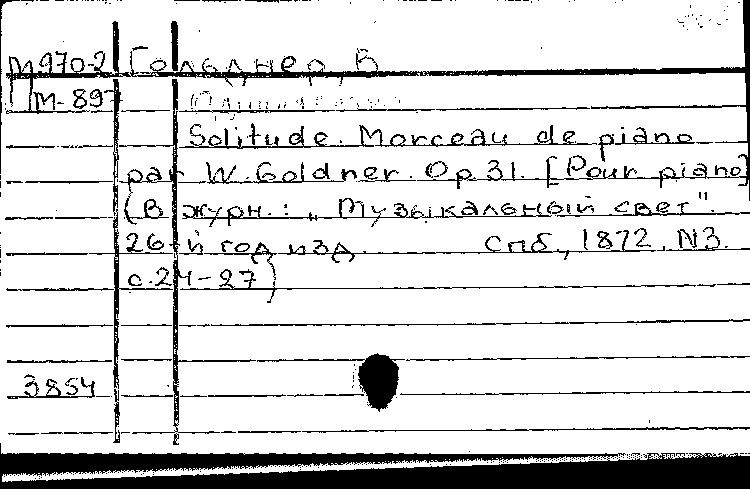 М970-2 Гольднер, В
М-897
Solitude. Morceau de piano
par W. Goldner. Op 31. [Pour piano]
(В журн.: „Музыкальный свет".
26-й год изд. Спб., 1872. N3.
с. 24-27)
3854